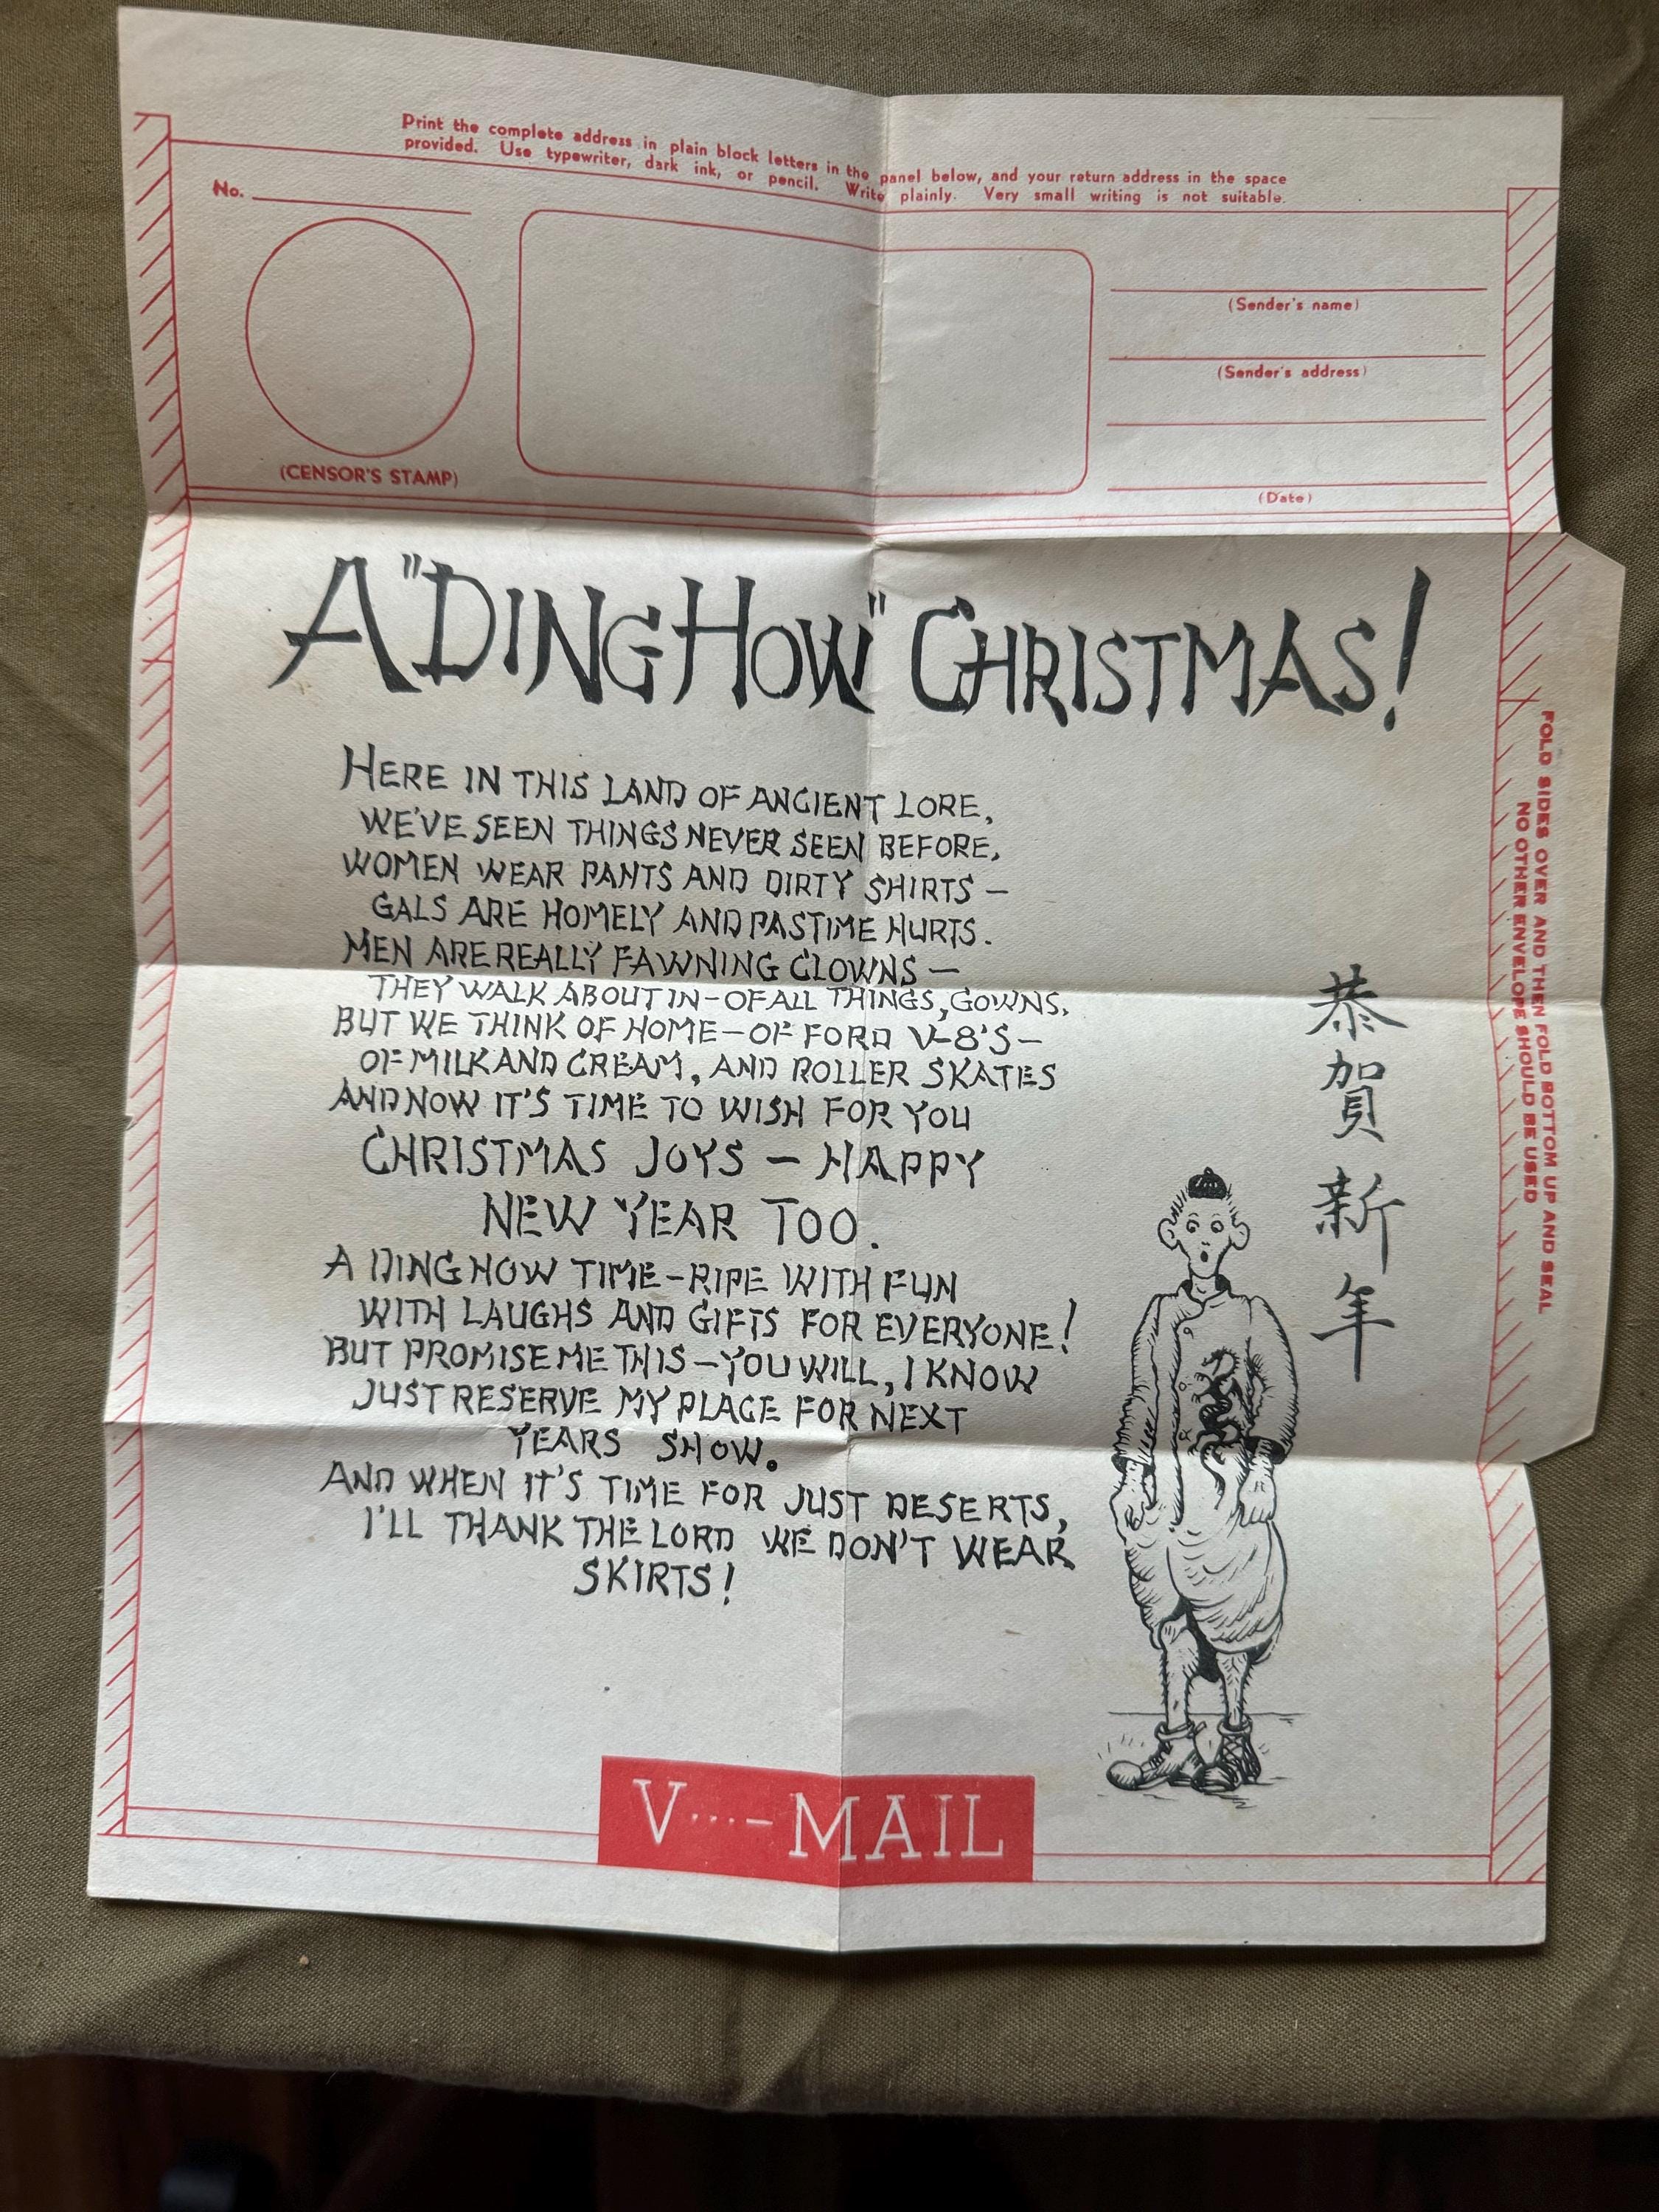 Print the complete address in plain block letters in the panel below, and your return address in the space
provided. Use typewriter, dark ink, or pencil. Write plainly. Very small writing is not suitable.
No.
(CENSOR'S STAMP)
(Sender's name)
(Sender's address)
(Date)
A "DING HOW" CHRISTMAS!
HERE IN THIS LAND OF ANCIENT LORE,
WE'VE SEEN THINGS NEVER SEEN BEFORE,
WOMEN WEAR PANTS AND DIRTY SHIRTS —
GALS ARE HOMELY AND PASTIME HURTS.
MEN ARE REALLY FAWNING CLOWNS —
THEY WALK ABOUT IN—OF ALL THINGS, GOWNS.
BUT WE THINK OF HOME—OF FORD V-8'S—
OF MILK AND CREAM, AND ROLLER SKATES
AND NOW IT'S TIME TO WISH FOR YOU
CHRISTMAS JOYS — HAPPY
NEW YEAR TOO.
A DING HOW TIME—RIPE WITH FUN
WITH LAUGHS AND GIFTS FOR EVERYONE!
BUT PROMISE ME THIS—YOU WILL, I KNOW
JUST RESERVE MY PLACE FOR NEXT
YEARS SHOW.
AND WHEN IT'S TIME FOR JUST DESERTS,
I'LL THANK THE LORD WE DON'T WEAR
SKIRTS!
恭賀新年
FOLD SIDES OVER AND THEN FOLD BOTTOM UP AND SEAL
NO OTHER ENVELOPE SHOULD BE USED
V···—MAIL